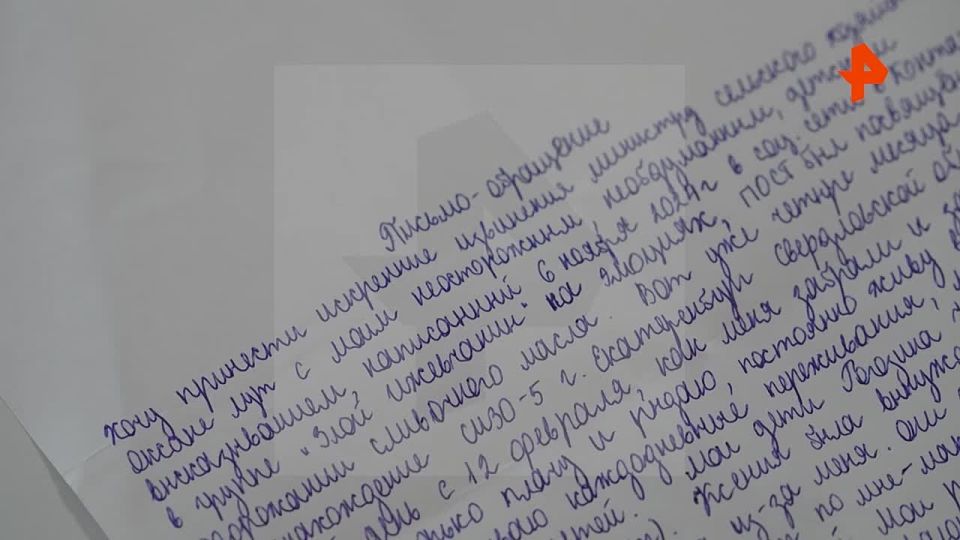 Письмо-обращение
хочу принести искренние извинения министру сельского хозяйства
Оксане Лут с моим неосторожным, необдуманным, детским
высказыванием, написанный 6 ноября 2024г в соц. сети в Конта
в группе "Злой ижевчанин" на эмоциях, пост был посвящен
подорожании сливочного масла. Вот уже четыре месяца
нахождение СИЗО-5 г. Екатеринбург свердловской об
день с 12 февраля, как меня забрали и за
только плачу и рыдаю, постоянно живу в
каждодневные переживания,
детей. У мои дети Гордина
Ксения была вынужде
из-за меня. Они
по мне-мам
мои